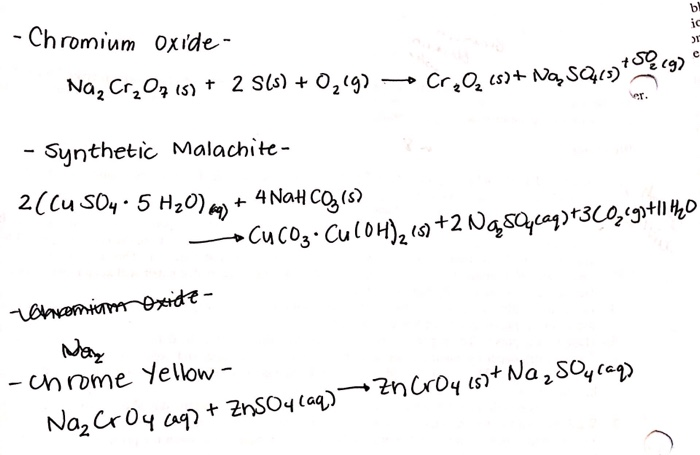 - Chromium Oxide -
Na₂Cr₂O₇ (s) + 2 S(s) + O₂(g) ⟶ Cr₂O₂ (s) + Na₂SO₄(s) + SO₂(g)
er.
- Synthetic Malachite -
2(CuSO₄ · 5 H₂O)(aq) + 4NaHCO₃(s)
⟶ CuCO₃ · Cu(OH)₂ (s) + 2 Na₂SO₄(aq) + 3CO₂(g) + 11H₂O
- Chromium Oxide -
Na₂
- Chrome Yellow -
Na₂CrO₄ (aq) + ZnSO₄(aq) ⟶ ZnCrO₄ (s) + Na₂SO₄(aq)